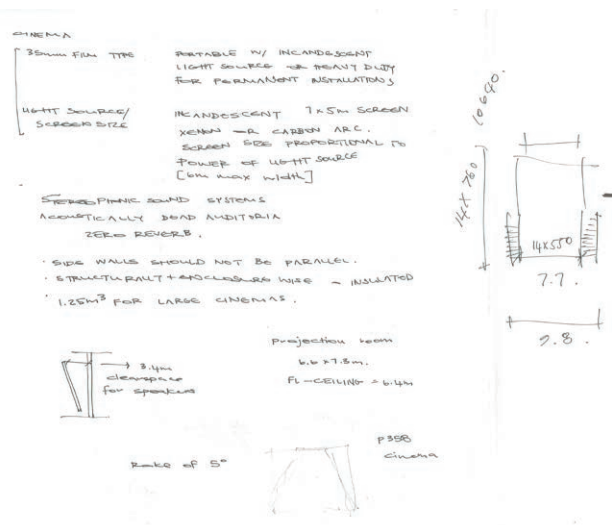 CINEMA
35mm FILM TYPE
PORTABLE W/ INCANDESCENT
LIGHT SOURCE OR HEAVY DUTY
FOR PERMANENT INSTALLATIONS
LIGHT SOURCE/
SCREEN SIZE
INCANDESCENT 7x5m SCREEN
XENON OR CARBON ARC.
SCREEN SIZE PROPORTIONAL TO
POWER OF LIGHT SOURCE
[6m max width]
STEREOPHONIC SOUND SYSTEMS
ACOUSTICALLY DEAD AUDITORIA
ZERO REVERB.
· SIDE WALLS SHOULD NOT BE PARALLEL.
· STRUCTURALLY + ENCLOSURE WISE - INSULATED
· 1.25m³ FOR LARGE CINEMAS.
→ 3.4m
clearspace
for speakers
Projection room
6.6 x 7.3m.
FL-CEILING = 6.4m
Rake of 5°
P358
cinema
10640.
14X760
14X550
7.7.
9.8.